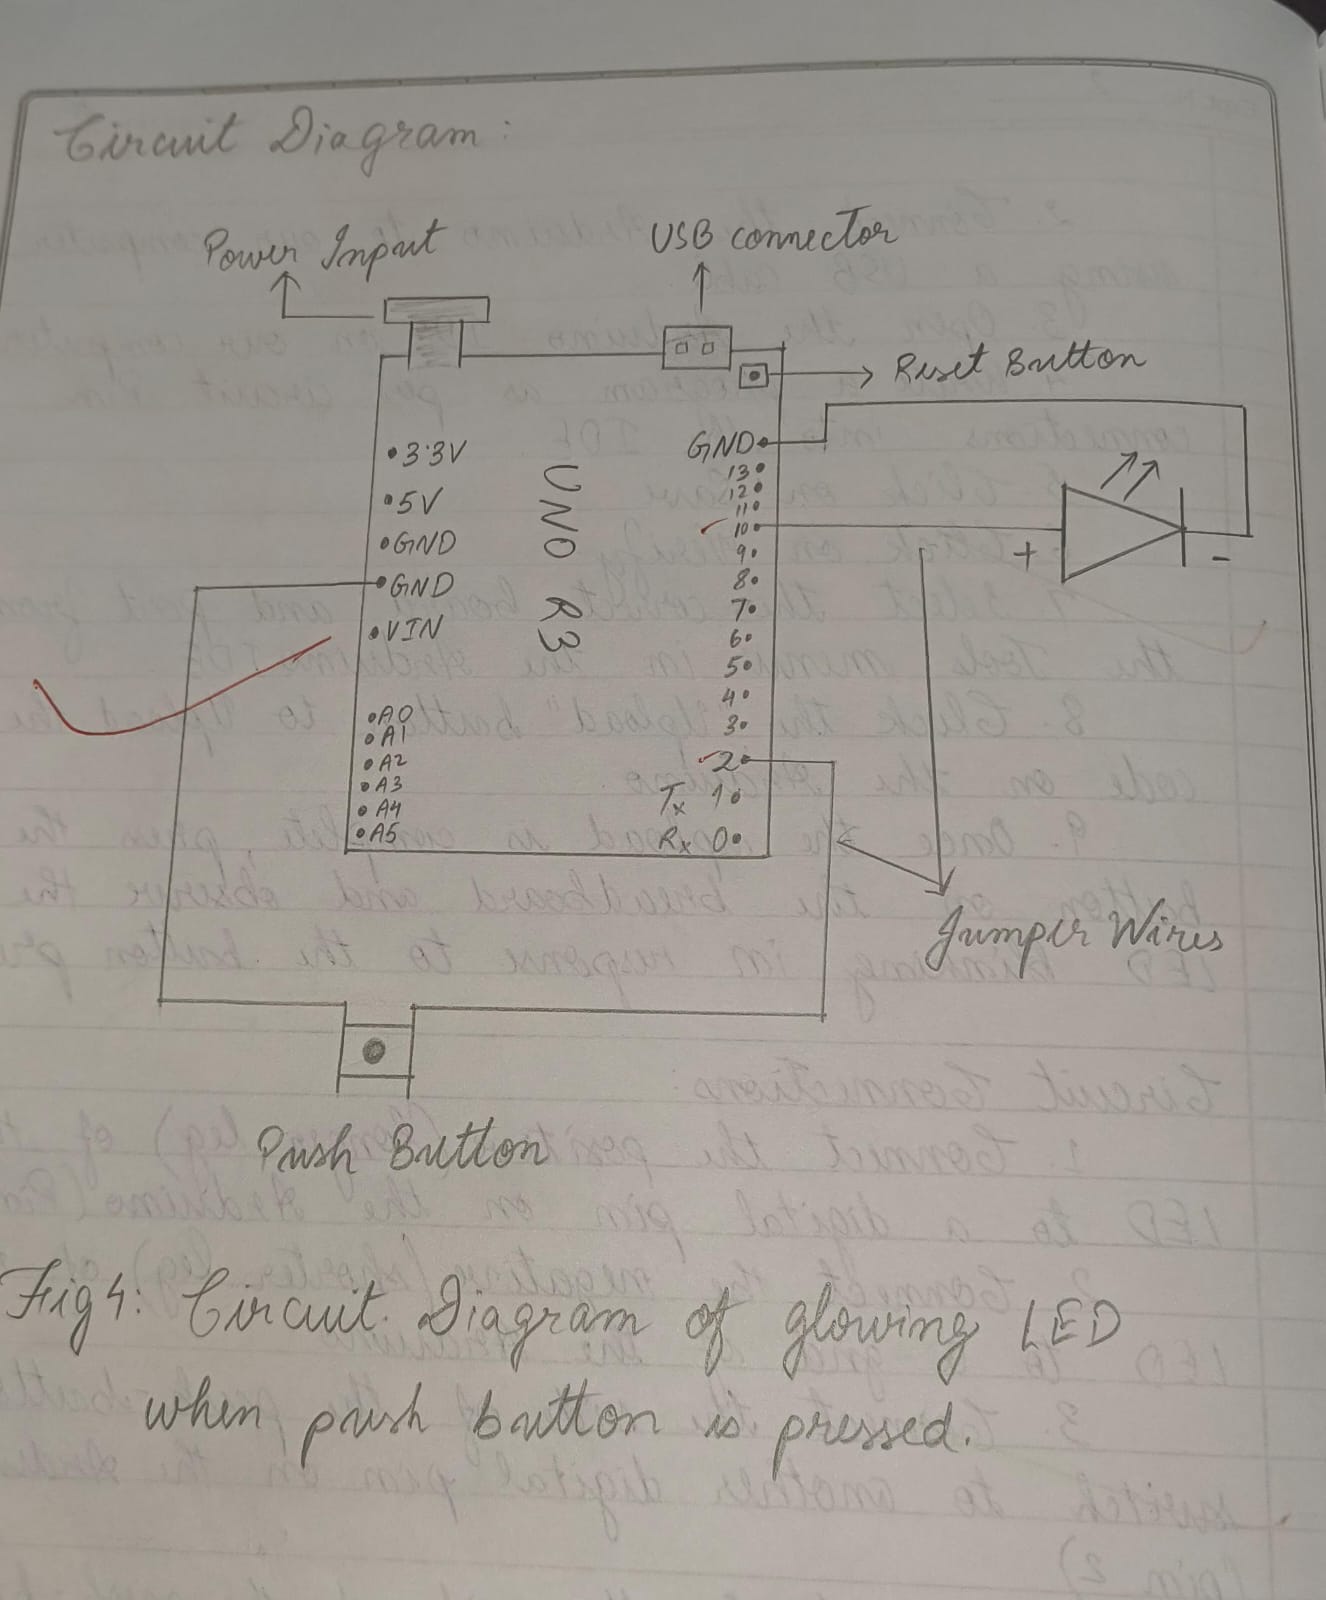 Circuit Diagram:
Power Input
USB connector
Reset Button
3.3V
5V
GND
GND
VIN
A0
A1
A2
A3
A4
A5
UNO R3
GND
13
12
11
10
9
8
7
6
5
4
3
2
Tx 1
Rx 0
+
-
Jumper Wires
Push Button
Fig 4: Circuit Diagram of glowing LED
when push button is pressed.